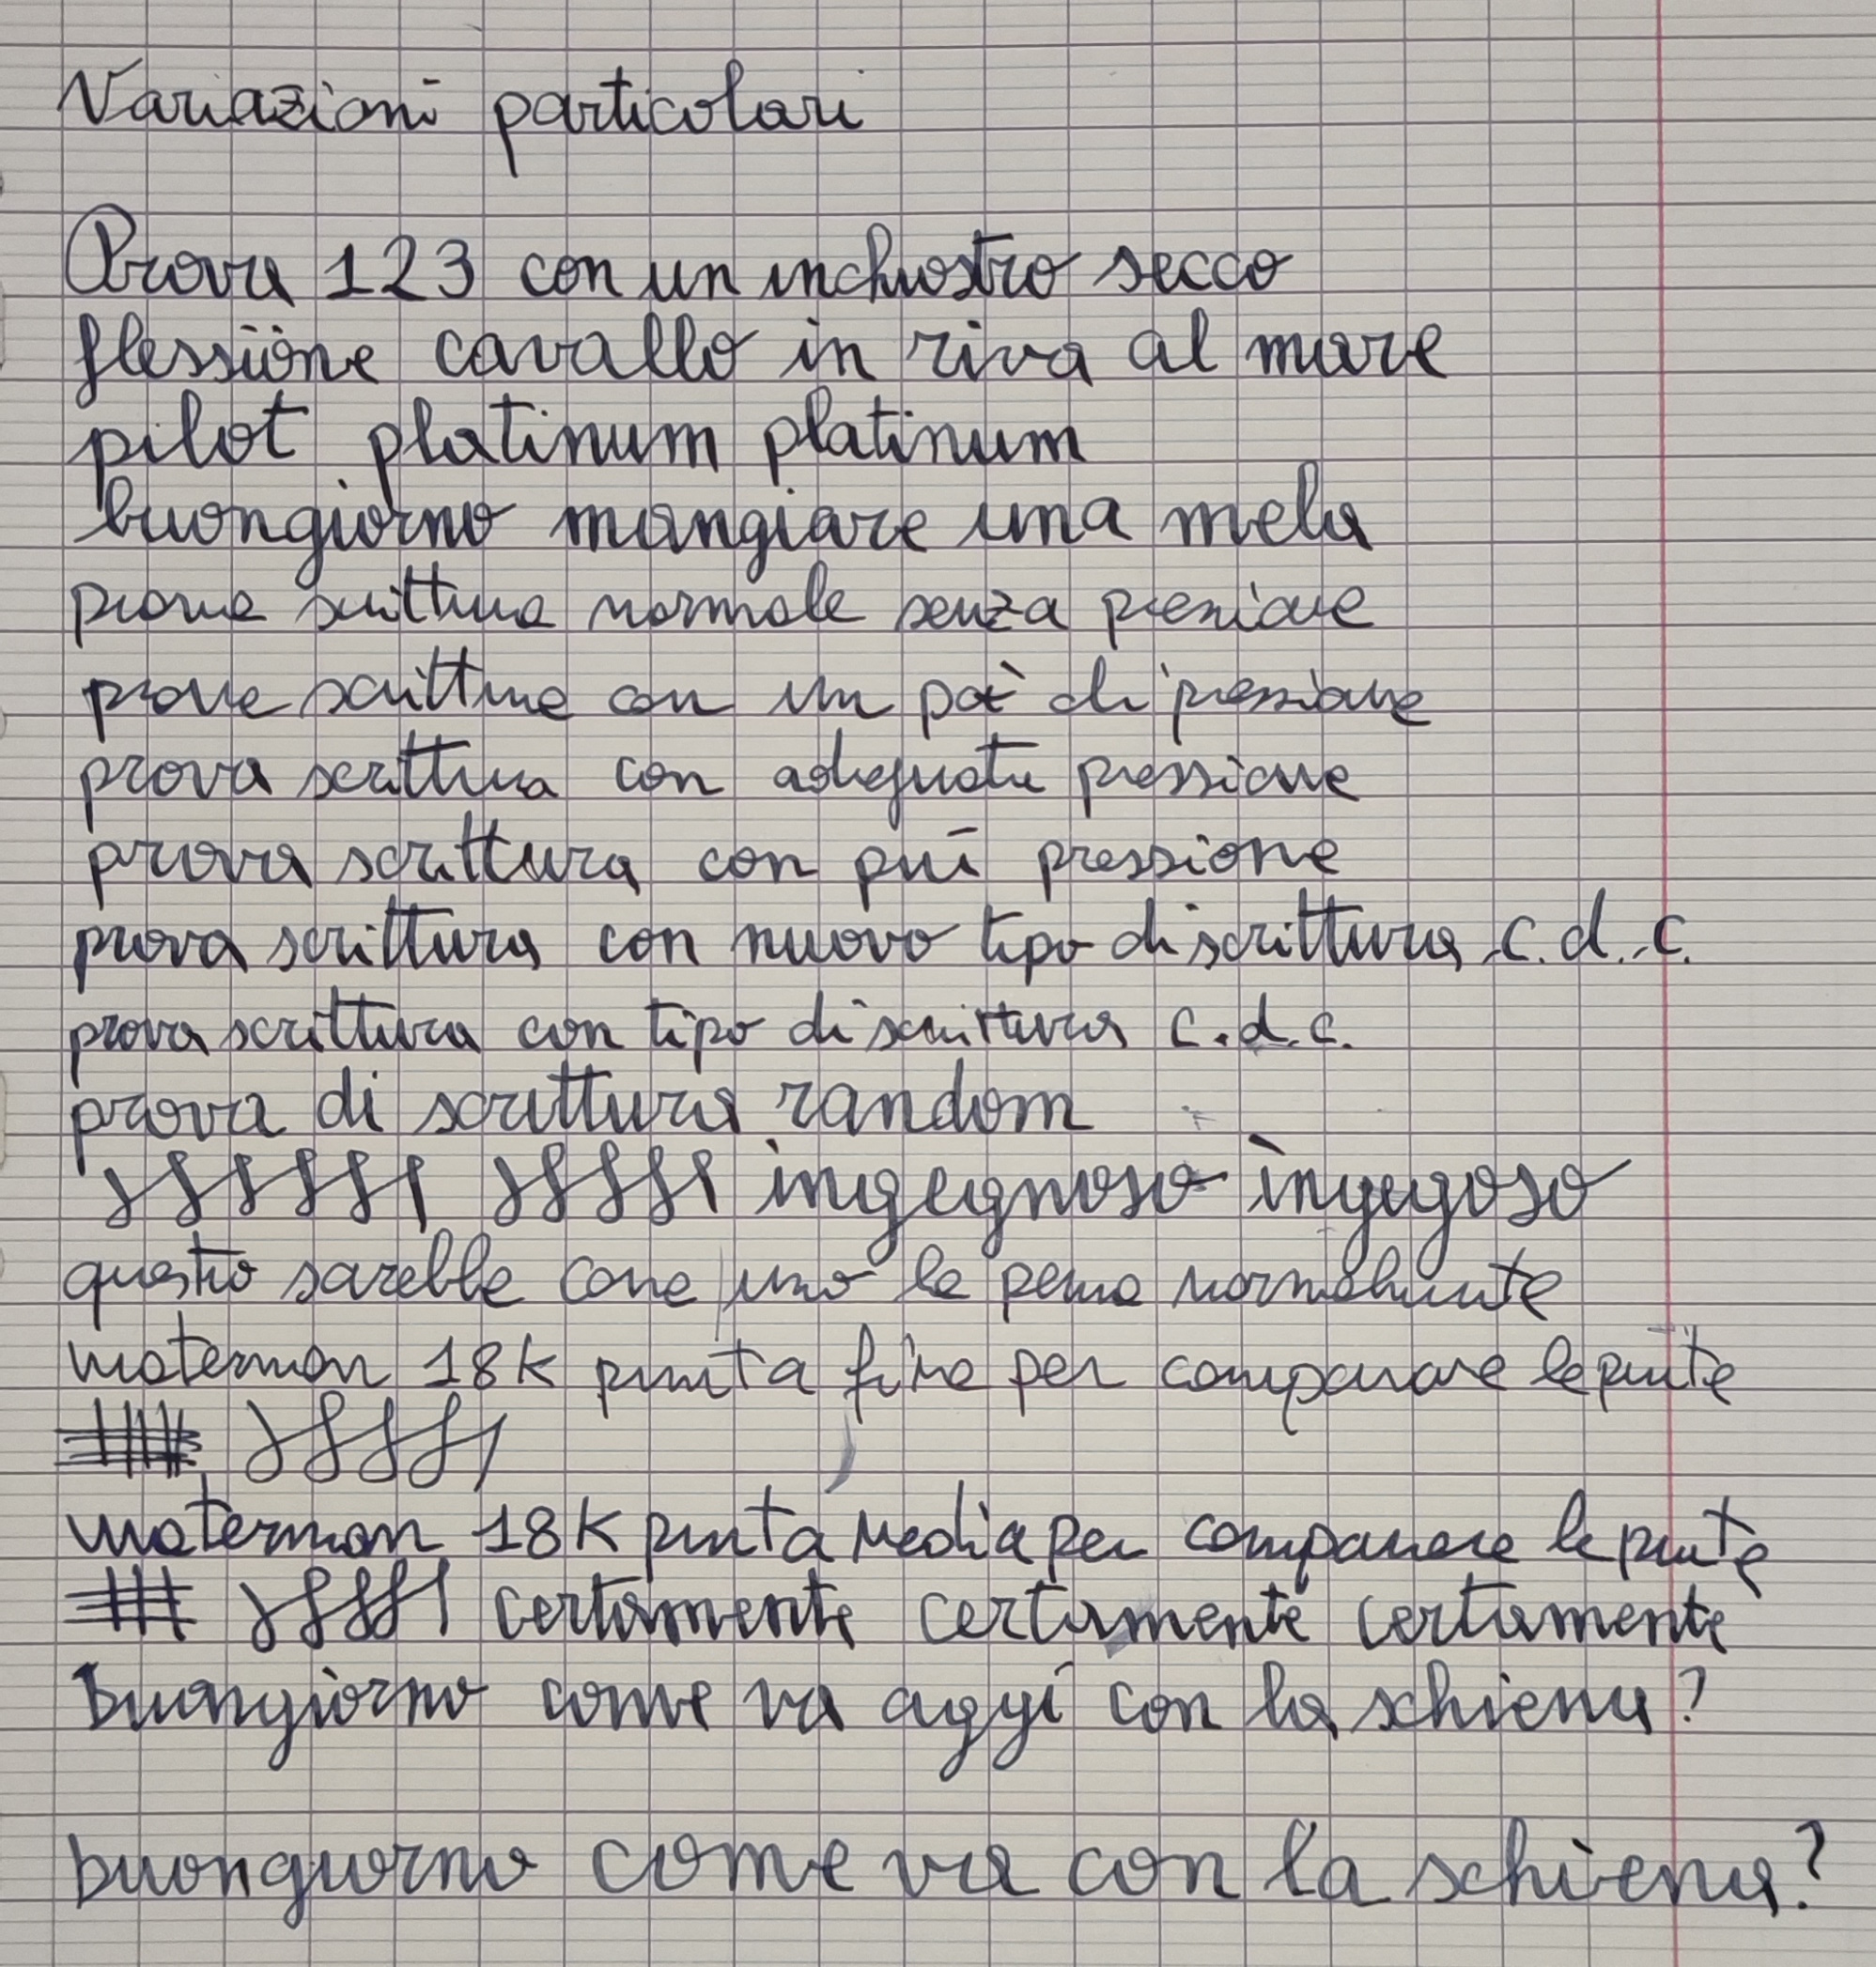 Variazioni particolari
Prova 123 con un inchiostro secco
flessiione cavallo in riva al mare
pilot platinum platinum
buongiorno mangiare una mela
prova scrittura normale senza pressione
prova scrittura con un po' di pressione
prova scrittura con adeguata pressione
prova scrittura con puì pressione
prova scrittura con nuovo tipo di scrittura c.d.c.
prova scrittura con tipo di scrittura c.d.c.
prova di scrittura random
ingegnoso ingegoso
questo sarebbe come uso la penna normalmente
waterman 18K punta fine per comparare le punte
waterman 18K punta Media per comparare le punte
certamente certamente certamente
Buongiorno come va oggi con la schiena?
buongiorno come va con la schiena?